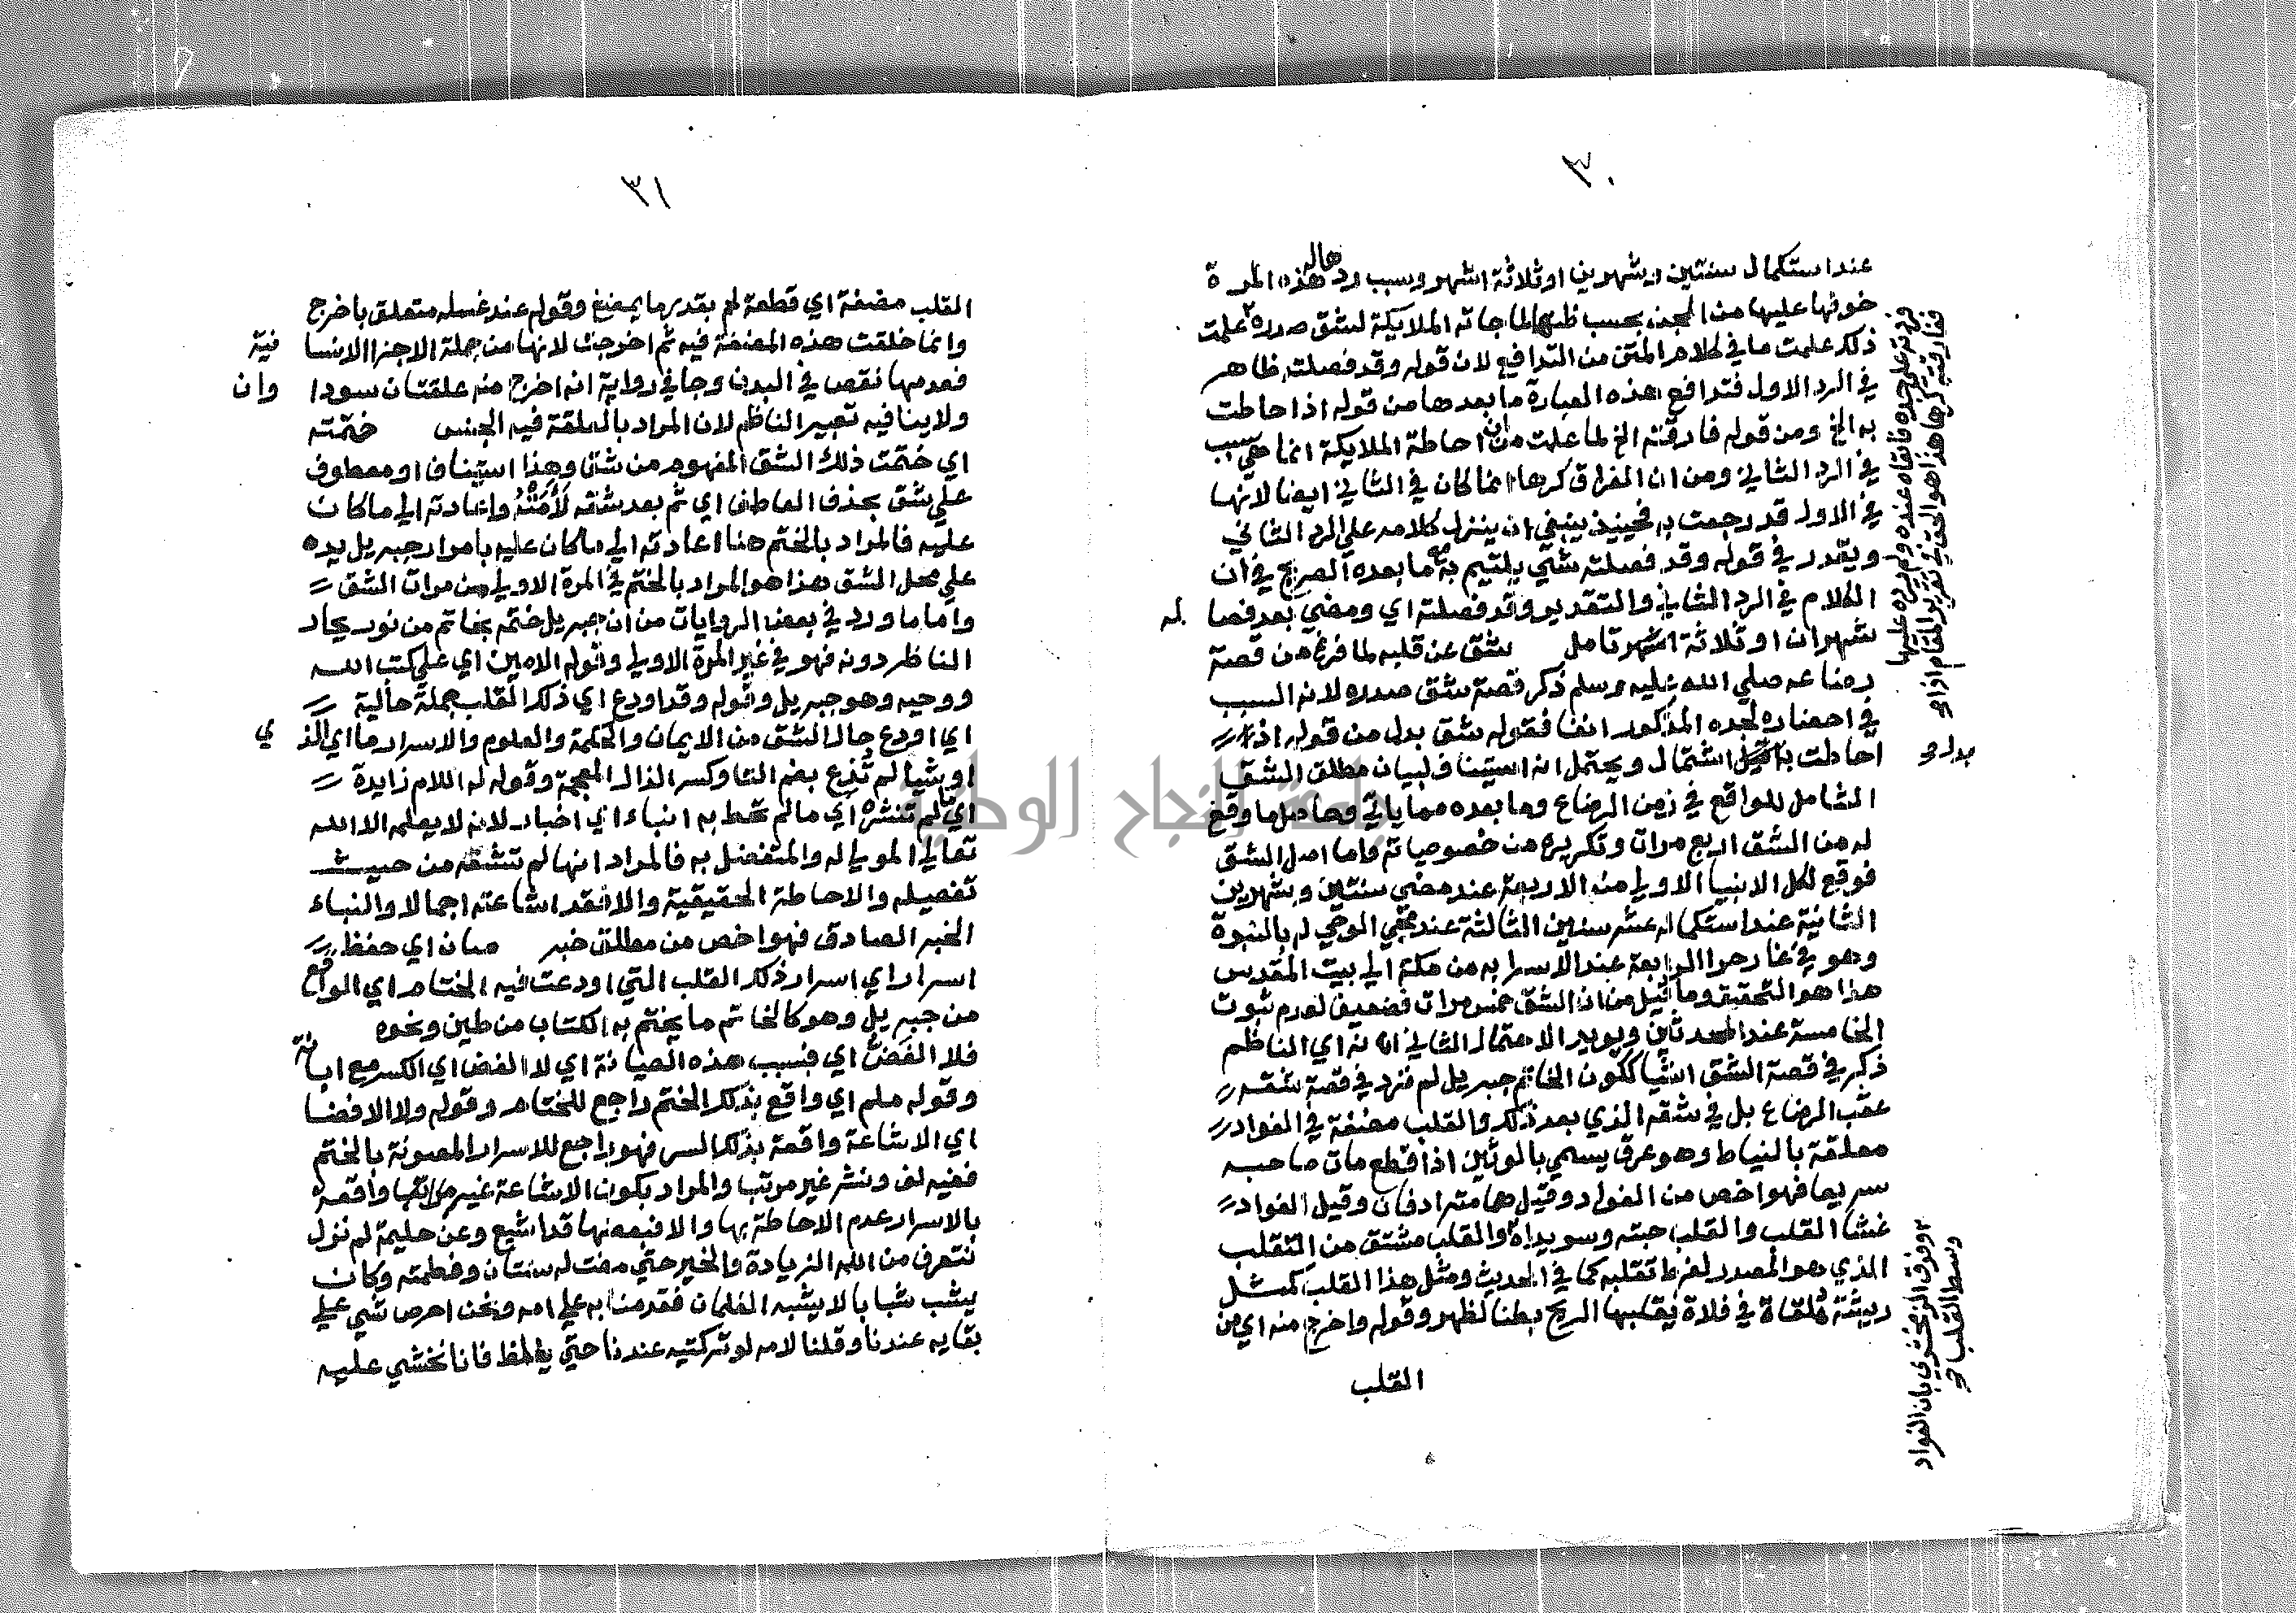 ٣٠
عند استكمال سنتين وشهرين او ثلاثة اشهر وسبب ردها له هذه المرة
خوفها عليها من الجن بحسب ظنها لما جاته الملايكة لشق صدره علمت
ذلك علمت ما في كلام المتن من التدافع لان قوله وقد فصلته ظاهر
في الرد الاول فتدافع هذه العبارة ما بعدها من قوله اذا حاطت
به الخ ومن قوله فارقته الخ لما علمت من ان احاطة الملايكة انما هي سبب
في الرد الثاني ومن ان الفراق كرها انما كان في الثاني ايضا لانها
في الاول قد رجعت به فحينيذ ينبغي ان ينزل كلامه علي الرد الثاني
ويقدر في قوله وقد فصلته شي يلتيم به ما بعده الصريح في ان
الكلام في الرد الثاني والتقدير وقد فصلته اي ومضي بعد فصا له
شهران او ثلاثة اشهر تامل شق عن قلبه لما فرغ من قصة
رضاعه صلي الله عليه وسلم ذكر قصة شق صدره لانه السبب
في احضاره لجده المذكور انفا فقوله شق بدل من قوله اذ
احاطت به اشتمال ويحتمل انه استيناف لبيان مطلق الشق
الشامل للواقع في زمن الرضاع وما بعده مما ياتي وحاصل ما وقع
له من الشق اربع مرات وتكريره من خصوصياته واما اصل الشق
فوقع لكل الانبيا الاولي منه الاربعة عند مضي سنتين وشهرين
الثانية عند استكماله عشر سنين الثالثة عند مجي الوحي له بالنبوة
وهو في غار حرا الرابعة عند الاسرا به من مكة الي بيت المقدس
هذا هو التحقيق وما قيل من ان الشق خمس مرات فضعيف لعدم ثبوت
الخامسة عند المحدثين ويويد الاحتمال الثاني انه اي الناظم
ذكر في قصة الشق اشيا ككون الخاتم جبريل لم تزد في قصة شقه
عقب الرضاع بل في شقه الذي بعد ذلك والقلب مضغة في الفواد
معلقة بالنياط وهو عرق يسمي بالوتين اذا قطع مات صاحبه
سريعا فهو اخص من الفواد وقيل هما مترادفان وقيل الفواد
غشا القلب والقلب حبته وسويداه والقلب مشتق من التقلب
الذي هو المصدر لفرط تقلبه كما في الحديث ومثل هذا القلب كمثل
ريشة ملقاة في فلاة يقلبها الريح بطنا لظهر وقوله واخرج منه اي من
القلب
فردته علي جده فابقاه عنده ولم يرده عليها
ففارقته كرها هذا هو الحق في تقرير المقام
بدل
وفرق الزمخشري بان الفواد
وسط القلب
٣١
القلب مضغة اي قطعة لحم بقدر ما يمضغ وقوله عند غسله متعلق باخرج
وانما خلقت هذه المضغة فيه ثم اخرجت لانها من جملة الاجزا الانسا نية
فعدمها نقص في البدن وجا في رواية انه اخرج منه علقتان سودا وان
ولا ينافيه تعبير الناظم لان المراد بالعلقة فيه الجنس ختمته
اي ختمت ذلك الشق المفهوم من شق وهذا استيناف او معطوف
علي شق بحذف العاطف اي ثم بعد شقه لأمته واعادته الي ما كان
عليه فالمراد بالختم هنا اعادته الي ما كان عليه بامرار جبريل يده
علي محل الشق هذا هو المراد بالختم في المرة الاولي من مرات الشق
واما ما ورد في بعض الروايات من ان جبريل ختمه بخاتم من نور يحار
الناظر دونه فهو في غير المرة الاولي وقوله الامين اي علي كتب الله
ووحيه وهو جبريل وقوله وقد اودع اي ذلك القلب جملة حالية
اي اودع حال الشق من الايمان والحكمة والعلوم والاسرار ما اي الذ ي
او شيا لم تذع بضم التا وكسر الذال المعجمة وقوله له اللام زايدة
اي لم تنشره اي ما لم تحط به انباء اي اخبار لانه لا يعلمه الا الله
تعالي المولي له والمتفضل به فالمراد انها لم تشقه من حيث
تفصيله والاحاطة الحقيقية والا فقد اشاعته اجمالا والنباء
الخبر الصادق فهو اخص من مطلق خبر صان اي حفظ
اسرار اي اسرار ذلك القلب التي اودعت فيه الختام اي الواقع
من جبريل وهو كالخاتم ما يختم به الكتاب من طين ونحوه
فلا الفض اي فبسبب هذه الصيانة اي لا الفض اي الكسر مع ابانة
وقوله ملم اي واقع بذلك الختم راجع للختام وقوله ولا الافضا
اي الاشاعة واقعة بذلك السر فهو راجع للاسرار المصونة بالختم
ففيه لف ونشر غير مرتب والمراد بكون الاشاعة غير واقعة
بالاسرار عدم الاحاطة بها والا فبعضها قد اشيع وعن حليمة لم نزل
نتعرف من الله الزيادة والخير حتي مضت له سنتان وفطمته وكان
يشب شبابا لا يشبه الغلمان فقدمنا به علي امه ونحن احرص شي علي
بقايه عندنا وقلنا لامه لو تركتيه عندنا حتي يغلظ فانا نخشي عليه
جامعة النجاح الوطنية